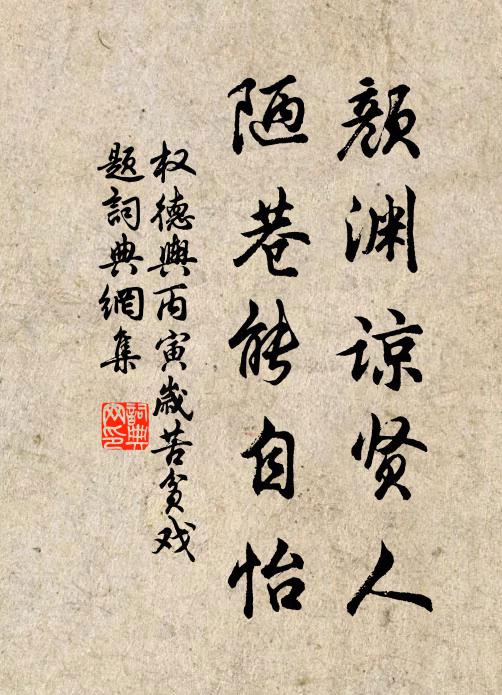 颜渊谅贤人
陋巷能自怡
权德舆丙寅岁苦贫戏
题詞典網集
詞典
网印